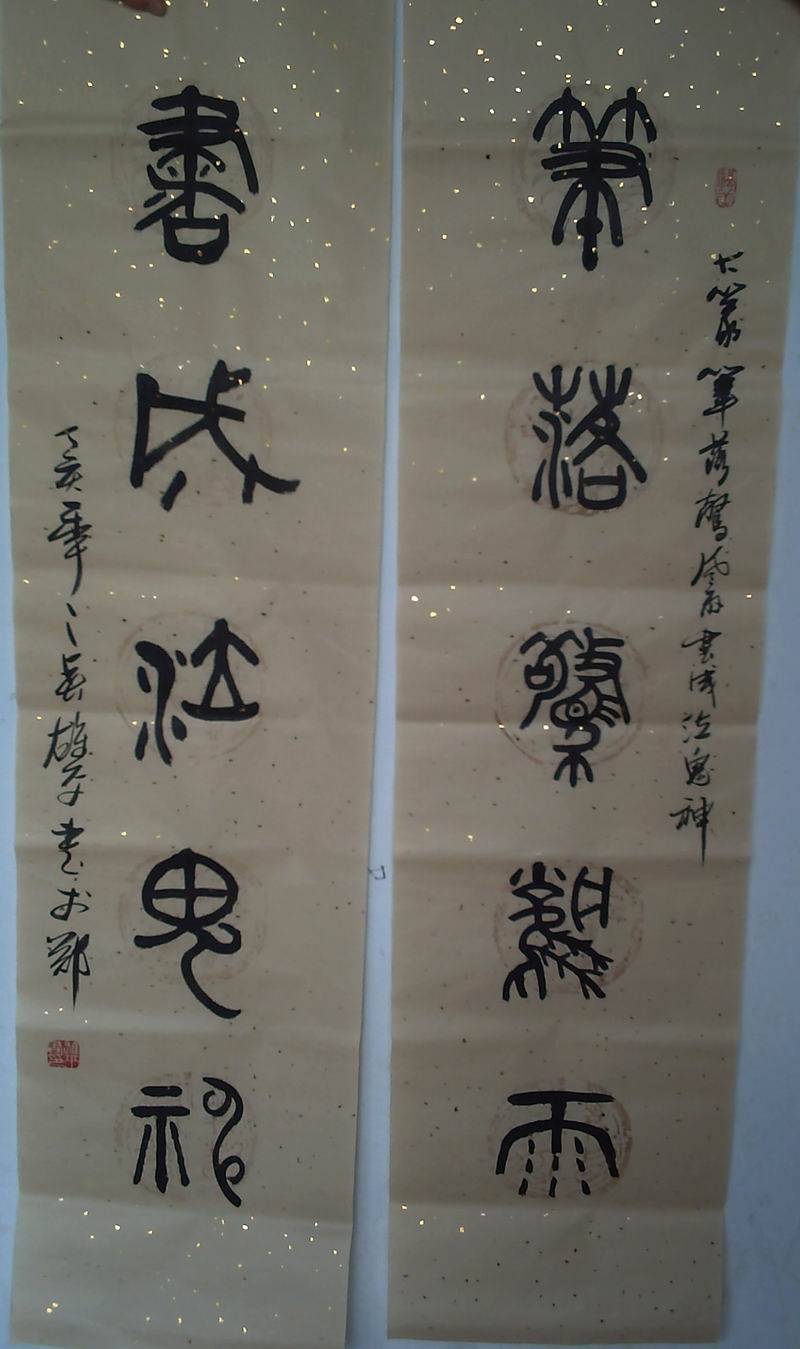 大篆筆落驚風雨書成泣鬼神
筆落驚風雨
書成泣鬼神
丁亥年
書於鄭